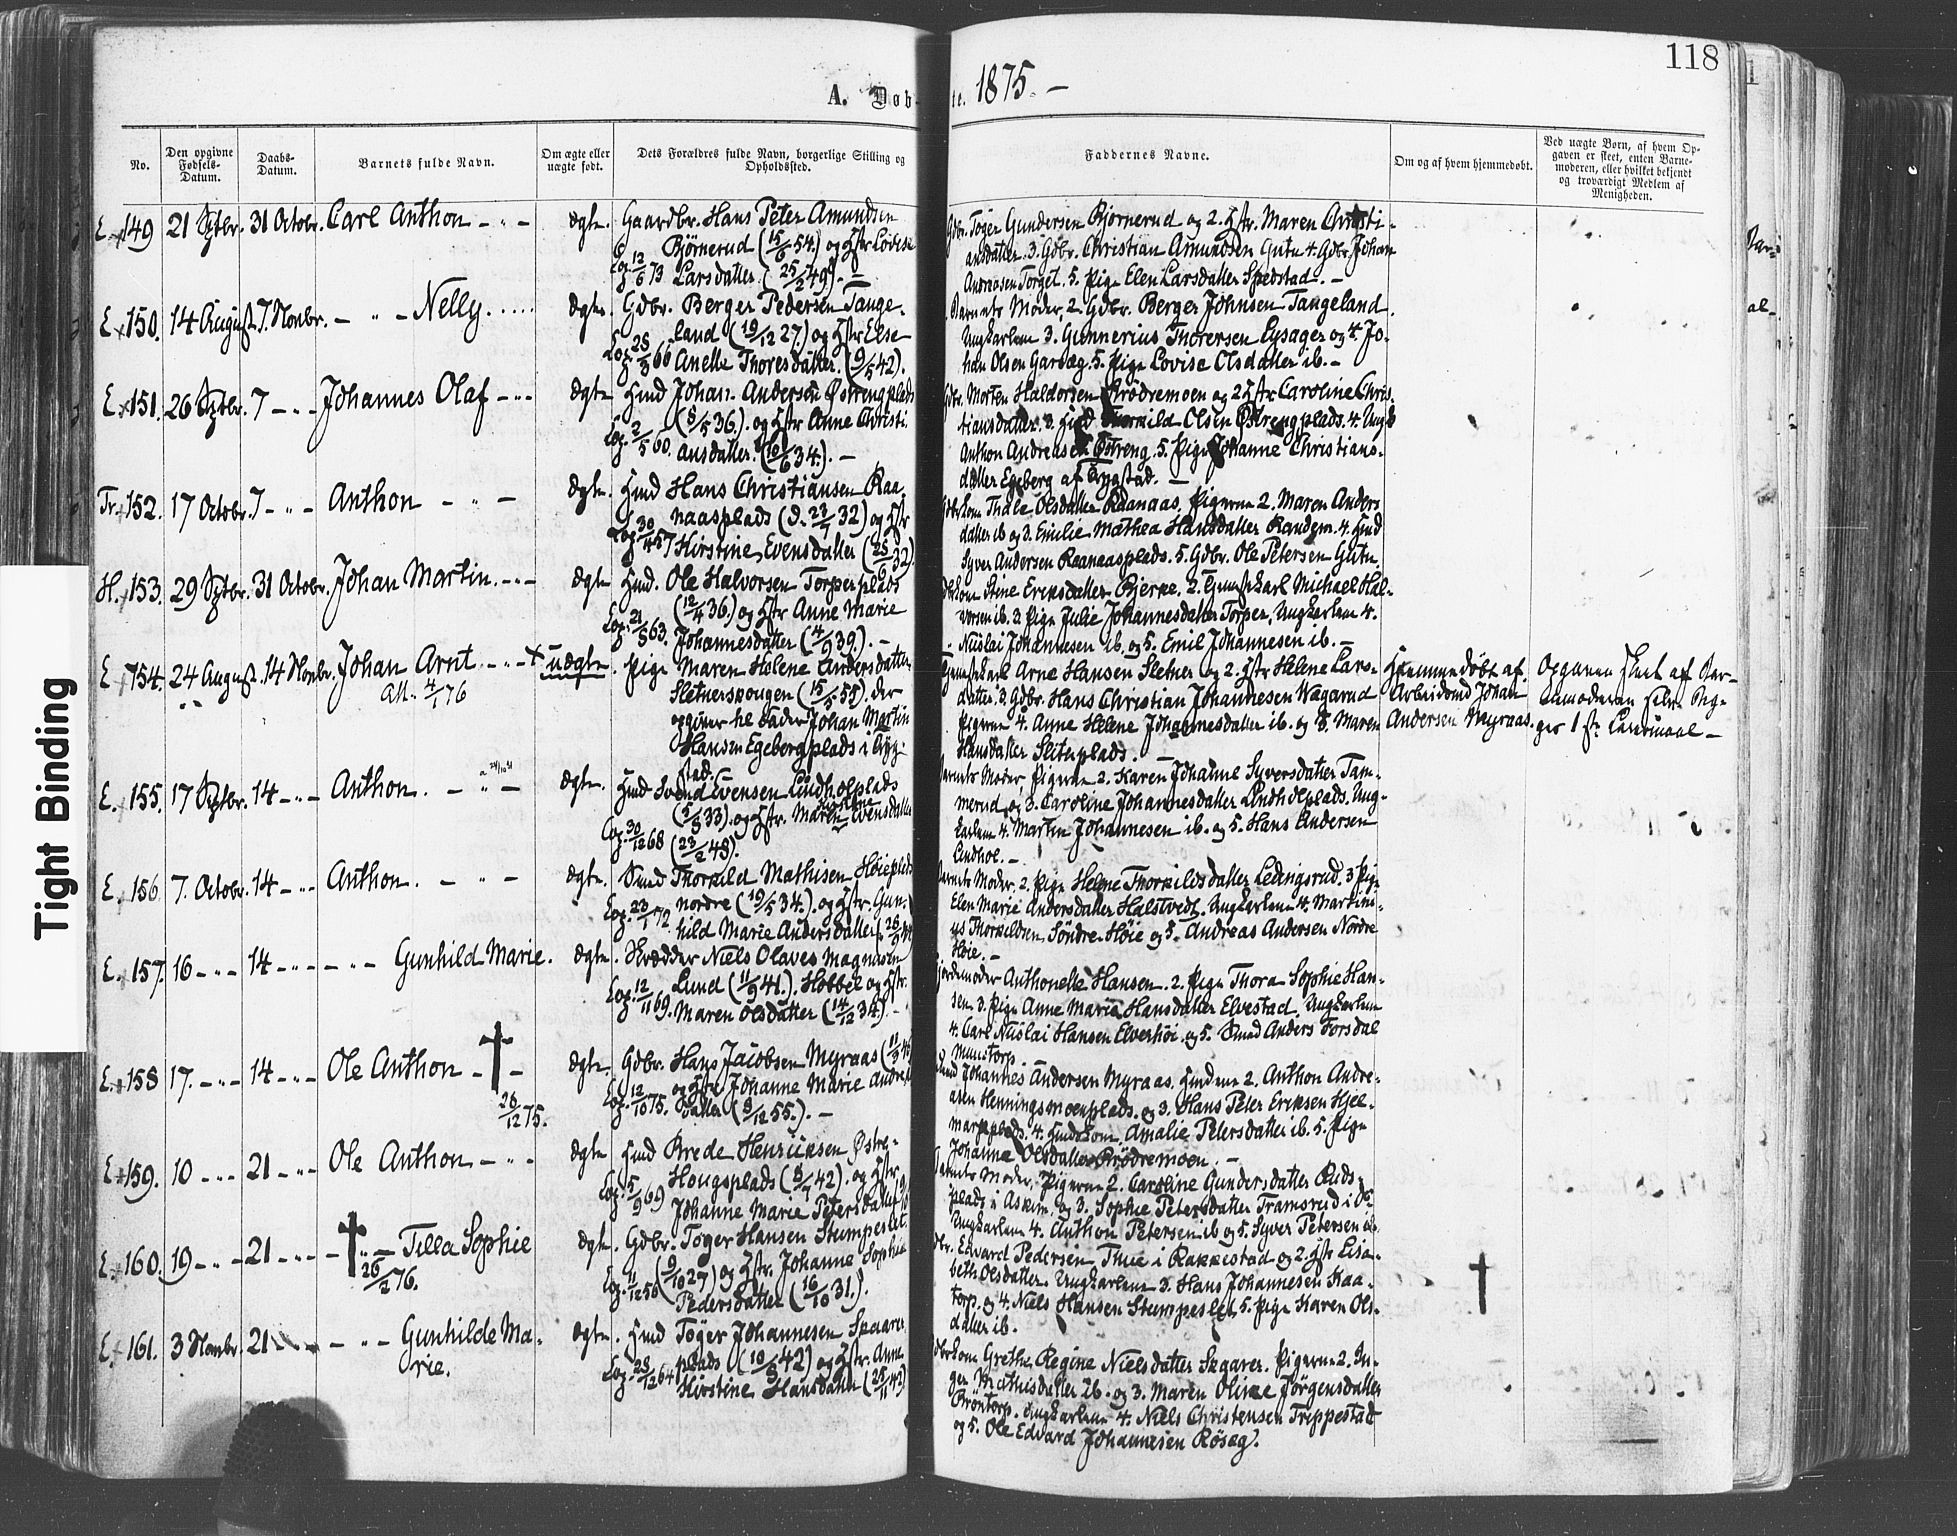 118
A. Døb-
te. 1875. –
No.
Den opgivne Fødsels-Datum.
Daabs-Datum.
Barnets fulde Navn.
Om ægte eller uægte født.
Dets Forældres fulde Navn, borgerlige Stilling og Opholdssted.
Faddernes Navne.
Om og af hvem hjemmedøbt.
Ved uægte Børn, af hvem Op-
gaven er skeet, enten Barne-
moderen, eller hvilket bekjendt
og troværdigt Medlem af
Menigheden.
E. 149 21 Sptbr. 31 Octobr. Carl Anthon – " – ægte. Gaardbr. Hans Peter Amundsen
Bjørnerud (15/6 54.) og Hstr Lovise
Cop. 12/6 73 Larsdatter. (25/2 49). –
Gdbr. Tøger Gundersen Bjørnerud og 2. Hstr. Maren Christi-
ansdatter. 3. Gdbr. Christian Amundsen Gutu 4. Gdbr. Johan
Andreasen Torget. 5. Pige Elen Larsdatter Spedstad. –
E. 150. 14 August. 7. Novbr. – " – Nelly . . . . . ægte. Gdbr. Berger Pedersen Tange-
land (19/12 27.) og Hstr Else
Cop. 28/3 66 Anette Thoresdatter. (9/5 42).
Barnets Moder, 2. Gdbr. Berger Johnsen Tangeland.
Ungkarlene 3. Gunnerius Thorersen Lysager og 4. Jo-
han Olsen Garseg. 5. Pige Lovise Olsdatter ib. –
E. 151. 26 Sptbr. 7 – " – Johannes Olaf – " – ægte Hmd Johan Andersen Østrengplads
(8/5 36.). og Hstr Anne Christi-
Cop. 2/5 60. ansdatter. (10/6 34.). –
Gdbr. Morten Haldorsen Brødremoen og 2 Hstr Caroline Chris-
tiansdatter. 3. Hmd Thorkild Olsen Østrengplads. 4. Ungk
Anthon Andreasen Østreng. 5. Pige Johanne Christians-
datter Egeberg af Trygstad. –
Tr. 152. 17 Octobr. 7 – " – Anthon – " – ægte. Hmd Hans Christiansen Raa-
naasplads (d. 23/7 32) og Hstr
Cop. 30/4 57 Kirstine Evensdatter (25/6 32).
Gdbrkone Thale Olsdatter Raanaas. Pigerne 2. Maren Anders
datter ib og 3. Emilie Mathea Hansdatter Randem. 4. Hmd
Syver Andersen Raanaasplads. 5. Gdbr. Ole Petersen Gutu.
H. 153. 29 Sptbr. 31 Octobr. Johan Martin. – " – ægte Hmd. Ole Halvorsen Torperplads
(12/4 36.) og Hstr Anne Marie
Cop. 21/5 63. Johannesdatter (4/9 39.). –
Stine Eriksdatter Bjerke. 2. Gaardkarl Michael Hal-
vorsen ib. 3. Pige Julie Johannesdatter Torper. Ungkarlene 4.
Nicolai Johannesen ib. og 5. Emil Johannesen ib. –
E 154. 24 August. 14 Novbr. Johan Arnt. – " – + uægte. Pige Maren Helene Andersdatter
Att. 4/1 76
Sletnerskougen (15/5 55). der
opgiver til Fader Johan Martin
Hansen Egebergplads i Tryg-
stad.
Arne Hansen Sletner og 2. Hstr Helene Lars-
datter. 3. Gdbr. Hans Christian Johannesen Wagarud
Pigerne 4. Anne Helene Johannesdatter ib. og 5. Maren
Hansdatter Slituplads. –
Hjemmedøbt af
Arbeidsmd Johan
Andersen Myraas.
Opgaven skeet af Bar-
nemoderen selv.
1ste Leiermaal –
E. 155. 17 Sptbr. 14 – " – Anthon. – " – ægte. Hmd Svend Evensen Lindholplads
(5/8 33). og Hstr. Maren Evensdatter
Cop. 30/12 68 (23/2 48).
Barnets Moder, Pigerne 2. Karen Johanne Syversdatter Tam-
merud og 3. Caroline Johannesdatter Lindholplads. Ung-
karlene 4. Martin Johannesen ib. og 5. Hans Andersen
Lindhol. –
E. 156 7. Octobr. 14 – " – Anthon. – " – ægte. Smed Thorkild Mathisen Høieplads
nordre (19/5 34.). og Hstr. Gun-
Cop. 23/1 72 hild Marie Andersdatter
Barnets Moder. 2. Pige Helene Thorkildsdatter Ledingsrud. 3 Pige
Elen Marie Andersdatter Halstvedt. Ungkarlene 4. Martini-
us Thorkildsen Søndre Høie og 5. Andreas Andersen Nordre
Høie. –
E. 157. 16 – " – 14 – " – – " – Gunhild Marie. ægte. Skrædder Niels Olaves Magnusen
Lund (11/9 41.). Hobbel og Hstr.
Cop. 12/11 69. Maren Olsdatter (14/12 34). –
Jordemoder Anthonette Hansen. 2. Pige Thora Sophie Han-
sen. 3. Pige Anne Marie Hansdatter Elvestad. Ungkarlene
4. Carl Nicolai Hansen Elverhøi. og 5. Smed Anders Forsdal
Monstorp.
E. 158 17. – " – 14 – " – Ole Anthon – † – ægte. Gdbr. Hans Jacobsen Myraas
26/12 75.
og Hstr Johanne Marie Andreas
Cop. 12/10 75. datter (8/12 55.). –
Hmd Johannes Andersen Myraas. Hmdene 2. Anthon Andre-
asen Henningsmoenplads. og 3. Hans Peter Eriksen Hjel-
markplads. 4. Hmdskone, Amalie Petersdatter ib. 5. Pige
Johanne Olsdatter Brødremoen. –
E 159. 10 – " – 21 – " – Ole Anthon – " – ægte Hmd Brede Henriksen Østre-
Hougsplads (8/7 42). og Hstr
Cop. 5/9 69 Johanne Marie Petersdatter
Barnets Moder, Pigerne 2. Caroline Gundersdatter Ruds-
plads i Askim. og 3. Sophie Petersdatter Tramsrud i do.
Ungkarlene 4. Anthon Petersen ib og 5. Syver Petersen ib.
E. 160. 19 – " – 21 – " – – † " – Tilla Sophie ægte. Gdbr. Tøger Hansen Stumpeslet.
26/2 76.
(9/10 27) og Hstr. Johanne Sophie
Cop. 11/12 56 Pedersdatter (16/10 31.).
Gdbr. Edvard Pedersen Thue i Rakkestad og 2. Hstr Lisa-
beth Olsdatter. Ungkarlene 3. Hans Johannesen Kaa-
torp. og 4. Niels Hansen Stumpeslet. 5. Pige Karen Ols-
datter ib.
†
E. 161. 3 Novbr. 21 – " – – " – Gunhilde Ma-
rie.
ægte. Hmd Tøger Johannesen Skaarer-
plads (10/3 42) og Hstr. Anne
Cop. 28/12 64 Kirstine Hansdatter
Grethe Regine Nielsdatter Skaarer. Pigerne 2. In-
ger Mathisdatter ib. og 3. Maren Oline Jørgensdatter
Brøntorp. Ungkarlene 4. Niels Christensen Trippestad
og 5. Ole Edvard Johannesen Røseg.
Tight Binding